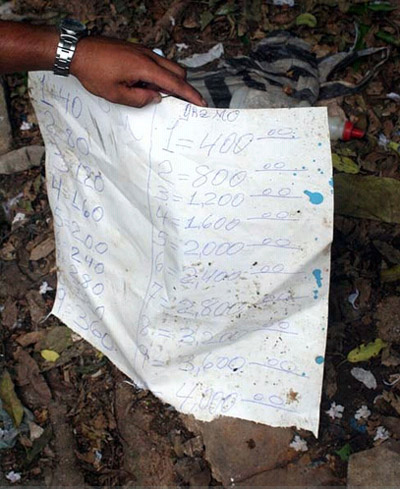 1=40
2=80
3=120
4=160
5=200
240
280
9=360
1=400 00
2=800 00
3=1,200 00
4=1,600 00
5=2,000 00
6=2,400 00
7=2,800 00
00
9=3,600 00
4,000 00